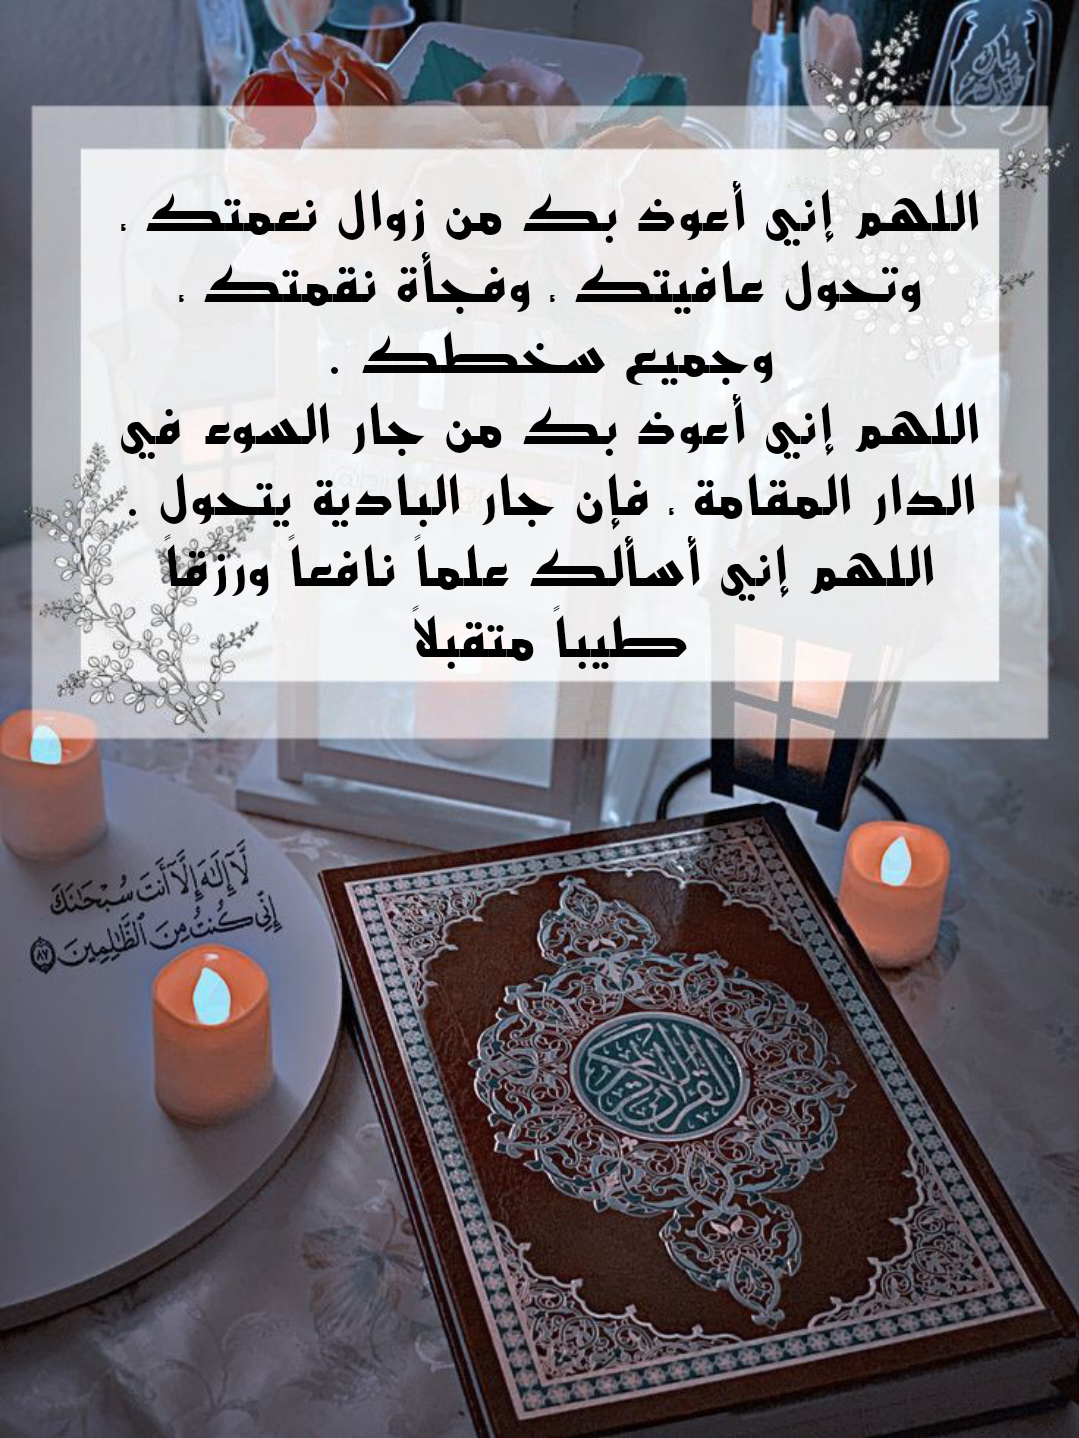 اللهم إني أعوذ بك من زوال نعمتك ،
وتحول عافيتك ، وفجأة نقمتك ،
وجميع سخطك .
اللهم إني أعوذ بك من جار السوء في
الدار المقامة ، فإن جار البادية يتحول .
اللهم إني أسألك علماً نافعاً ورزقاً
طيباً متقبلاً
لَّآ إِلَٰهَ إِلَّآ أَنتَ سُبْحَٰنَكَ
إِنِّى كُنتُ مِنَ ٱلظَّٰلِمِينَ ٨٧
القرآن الكريم